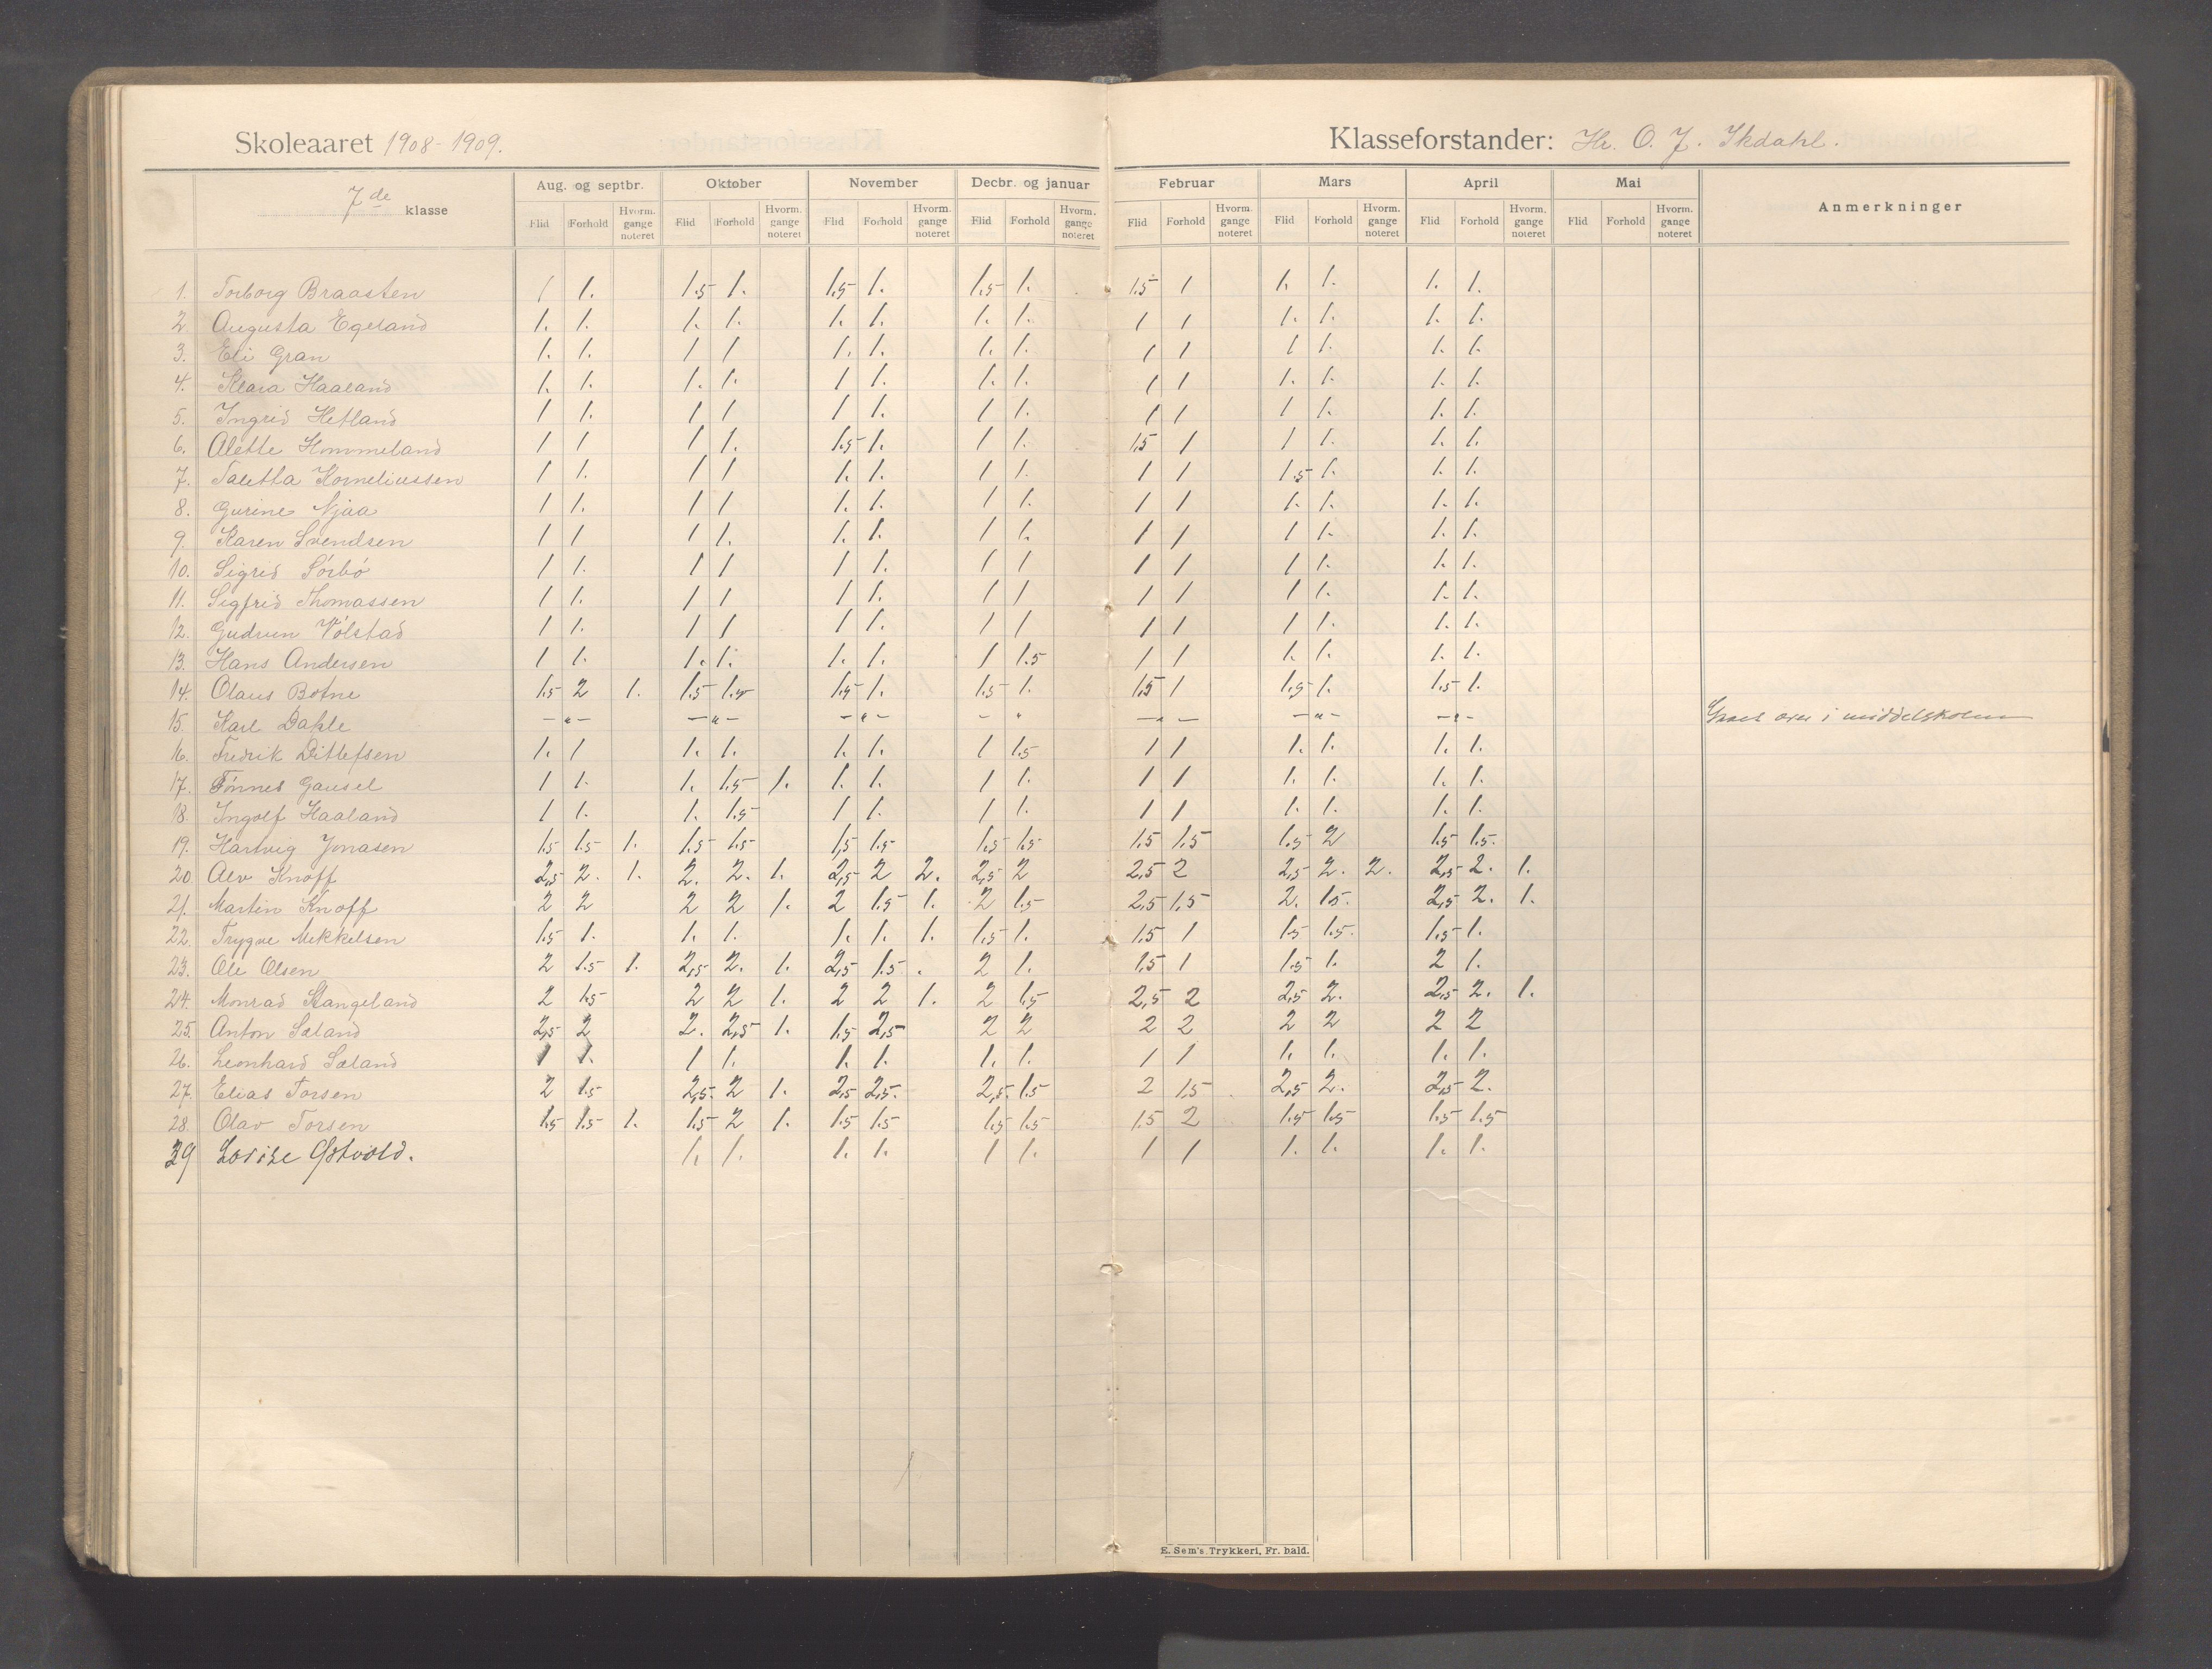 Skoleaaret 1908-1909.
Klasseforstander: Hr. O. J. Skdahl.
7de klasse
Aug. og septbr. Oktober November Decbr. og januar Februar Mars April Mai Anmerkninger
Flid Forhold Hvorm. gange noteret Flid Forhold Hvorm. gange noteret Flid Forhold Hvorm. gange noteret Flid Forhold Hvorm. gange noteret Flid Forhold Hvorm. gange noteret Flid Forhold Hvorm. gange noteret Flid Forhold Hvorm. gange noteret Flid Forhold Hvorm. gange noteret
1. Torborg Braasten 1 1. 1.5 1. 1.5 1. 1.5 1. 1.5 1 1. 1. 1. 1.
2 Augusta Egeland 1. 1. 1. 1. 1. 1. 1. 1. 1 1 1. 1. 1. 1.
3. Eli Gran 1. 1. 1 1 1. 1. 1. 1. 1 1 1 1. 1. 1.
4. Klara Haaland 1. 1. 1. 1. 1 1. 1. 1. 1 1 1. 1. 1. 1.
5. Ingrid Hetland 1 1. 1 1 1 1. 1 1. 1 1 1 1. 1. 1.
6. Alette Hommeland 1 1 1 1. 1.5 1. 1 1. 1.5 1 1 1. 1. 1.
7. Taletta Korneliussen 1 1. 1 1 1. 1. 1 1. 1 1 1.5 1. 1. 1.
8. Gurine Njaa 1 1. 1 1 1. 1. 1 1. 1 1 1. 1. 1. 1.
9. Karen Svendsen 1 1 1 1. 1. 1. 1 1. 1 1 1 1. 1. 1.
10. Sigrid Sörbö 1 1. 1 1 1 1. 1 1 1 1 1 1. 1. 1.
11. Sigfrid Thomassen 1 1. 1 1 1 1. 1 1 1 1 1 1. 1. 1.
12. Gudrun Völstad 1 1. 1 1 1 1. 1 1 1 1 1 1. 1. 1.
13. Hans Andersen 1 1. 1. 1. 1. 1. 1 1.5 1 1 1. 1. 1. 1.
14. Olaus Botne 1.5 2 1. 1.5 1.5 1.5 1. 1.5 1. 1.5 1 1.5 1. 1.5 1.
15. Karl Dahle —„— —„— —„— — „ —„— —„— —„— over i middelskolen
16. Fredrik Ditlefsen 1. 1 1. 1. 1. 1. 1 1.5 1 1 1. 1. 1. 1.
17. Tönnes Gausel 1 1. 1. 1.5 1. 1. 1. 1 1. 1 1 1. 1. 1. 1.
18. Ingolf Haaland 1 1. 1. 1.5 1 1. 1 1. 1 1 1. 1. 1. 1.
19. Hartvig Jonasen 1.5 1.5 1. 1.5 1.5 1,5 1.5 1.5 1.5 1.5 1.5 1.5 2 1.5 1.5.
20. Alv Knoff 2,5 2. 1. 2. 2. 1. 2,5 2 2. 2,5 2 2,5 2 2,5 2. 2. 2,5 2. 1.
21. Martin Knoff 2 2 2 2 1. 2 1.5 1. 2 1.5 2,5 1,5 2. 1.5. 2,5 2. 1.
22. Trygve Mekkelsen 1.5 1. 1. 1. 1. 1. 1. 1.5 1. 1.5 1 1.5 1.5. 1.5 1.
23. Ole Olsen 2 1.5 1. 2,5 2. 1. 2,5 1.5. . 2 1. 1,5 1 1.5 1. 2 1.
24. Monrad Stangeland 2 1.5 2 2 1. 2 2 1. 2 1.5 2,5 2 2,5 2. 2,5 2. 1.
25. Anton Sæland 2,5 2 2. 2,5 1. 1.5 2,5 2 2 2 2 2 2 2 2
26. Leonhard Sæland 1 1. 1 1. 1. 1. 1. 1. 1 1 1. 1. 1. 1.
27. Elias Torsen 2 1.5 2,5. 2 1. 2,5 2,5. 2,5. 1.5 2 1,5 2,5 2. 2,5 2.
28. Olav Torsen 1.5 1.5 1. 1.5 2 1. 1.5 1.5 1.5 1.5 1.5 2 1.5 1.5 1.5 1.5
29 Lovise Østvold. 1. 1. 1. 1. 1 1. 1 1 1. 1. 1. 1.
E. Sem's Trykkeri, Fr. hald.